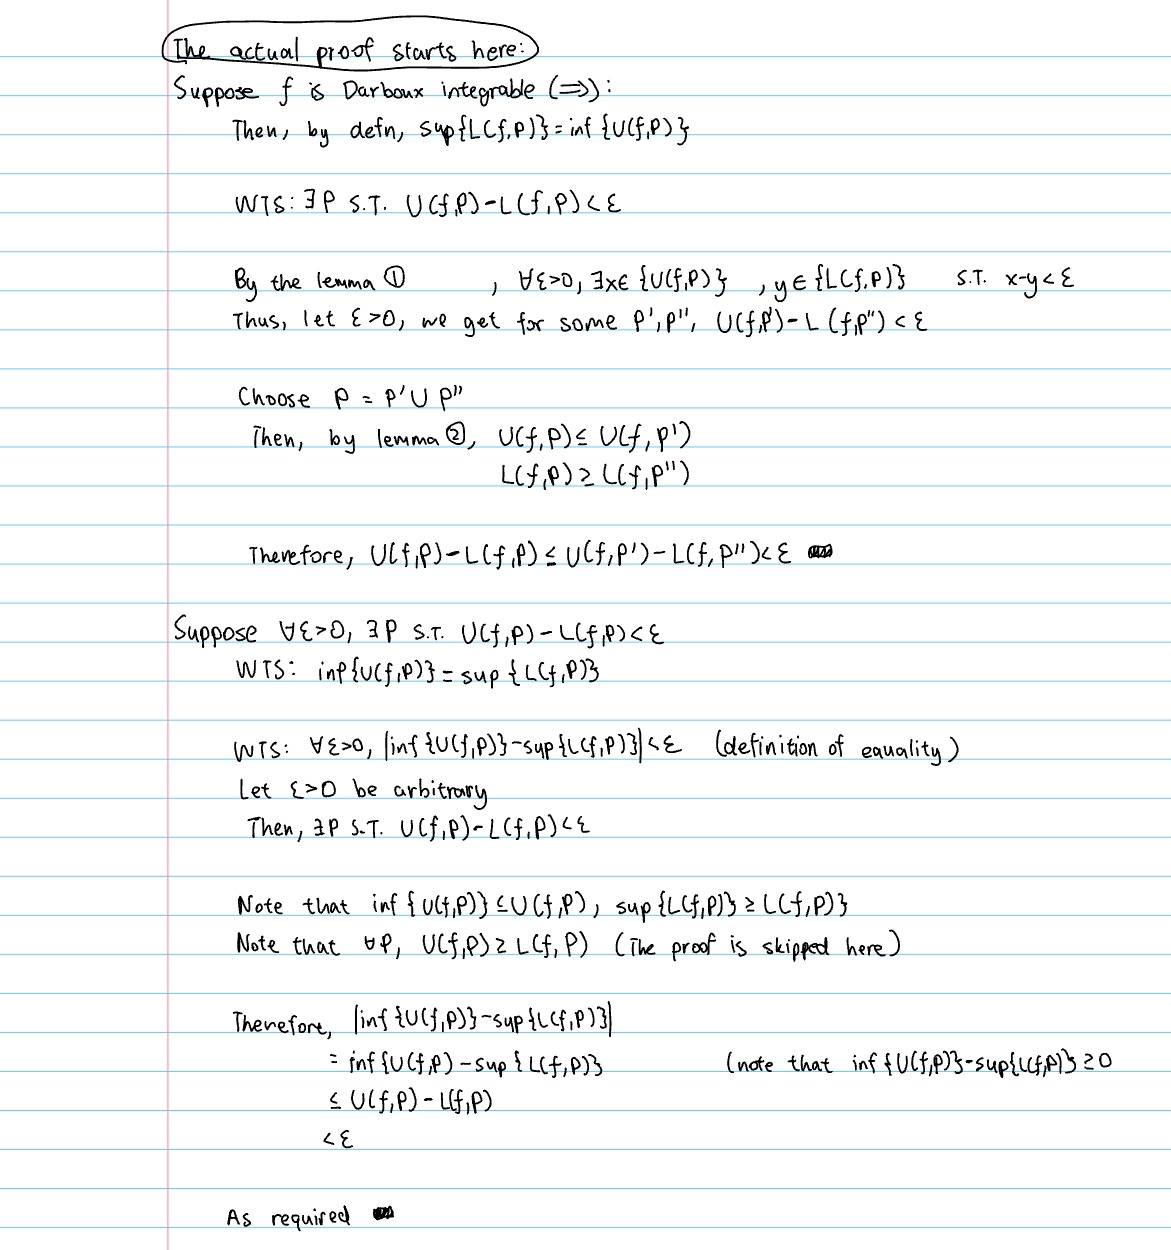 The actual proof starts here:
Suppose f is Darboux integrable (⇒):
Then, by defn, sup{L(f,P)}=inf{U(f,P)}
WTS: ∃P S.T. U(f,P)-L(f,P)<ε
By the lemma ① , ∀ε>0, ∃x∈{U(f,P)} , y∈{L(f,P)} S.T. x-y<ε
Thus, let ε>0, we get for some P',P'', U(f,P')-L(f,P'')<ε
Choose P = P'∪P''
Then, by lemma ②, U(f,P)≤U(f,P')
L(f,P)≥L(f,P'')
Therefore, U(f,P)-L(f,P)≤U(f,P')-L(f,P'')<ε
Suppose ∀ε>0, ∃P S.T. U(f,P)-L(f,P)<ε
WTS: inf{U(f,P)}=sup{L(f,P)}
WTS: ∀ε>0, |inf{U(f,P)}-sup{L(f,P)}|<ε (definition of equality)
Let ε>0 be arbitrary
Then, ∃P S.T. U(f,P)-L(f,P)<ε
Note that inf{U(f,P)}≤U(f,P), sup{L(f,P)}≥L(f,P)}
Note that ∀P, U(f,P)≥L(f,P) (The proof is skipped here)
Therefore, |inf{U(f,P)}-sup{L(f,P)}|
=inf{U(f,P)-sup{L(f,P)} (note that inf{U(f,P)}-sup{L(f,P)}≥0
≤U(f,P)-L(f,P)
<ε
As required